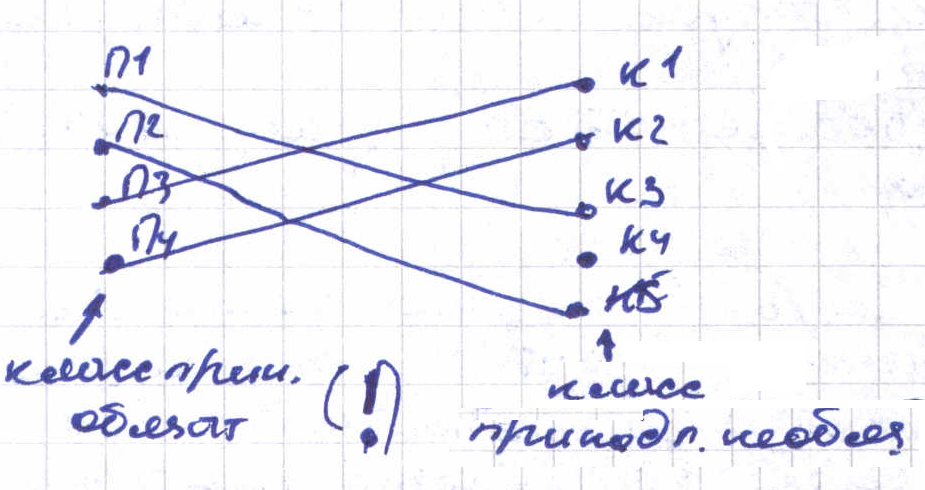 П1
К1
П2
К2
П3
К3
П4
К4
К5
класс прин.
обязат (!)
класс
принадл. необяз